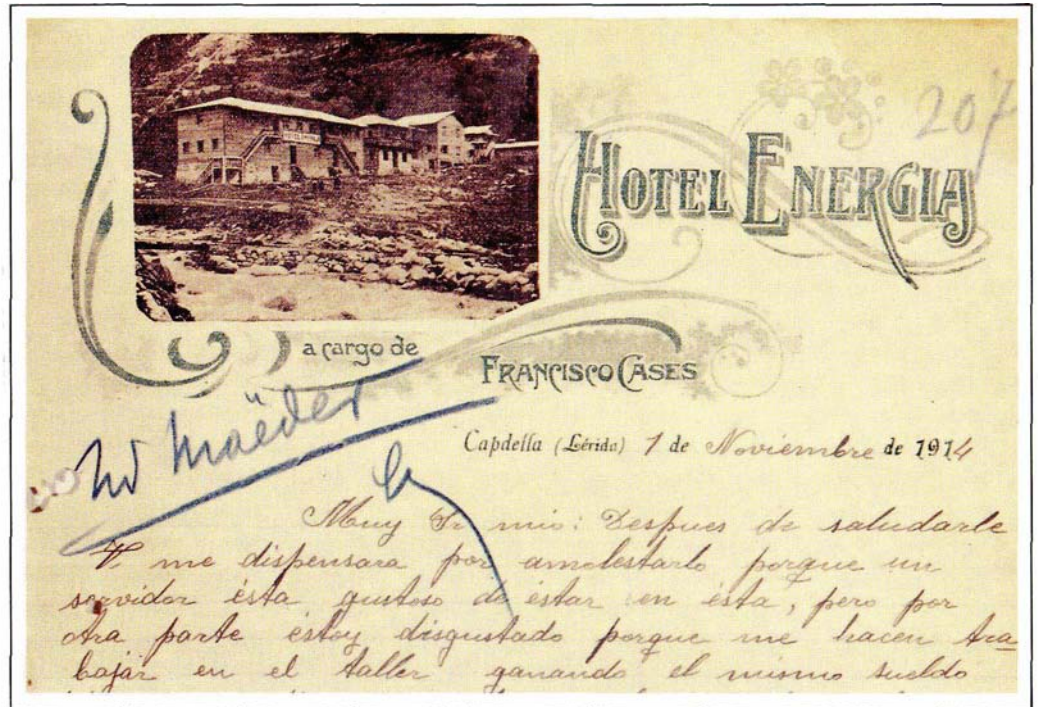 HOTEL ENERGIA
207
a cargo de
FRANCISCO CASES
Maëder
Capdella (Lérida) 1 de Noviembre de 1914
Muy Sr mio: Despues de saludarle
V me dispensara por amolestarlo porque un
servidor ésta gustoso de éstar en ésta, pero por
otra parte éstoy disgustado porque me hacen tra
bajar en el taller ganando el mismo sueldo